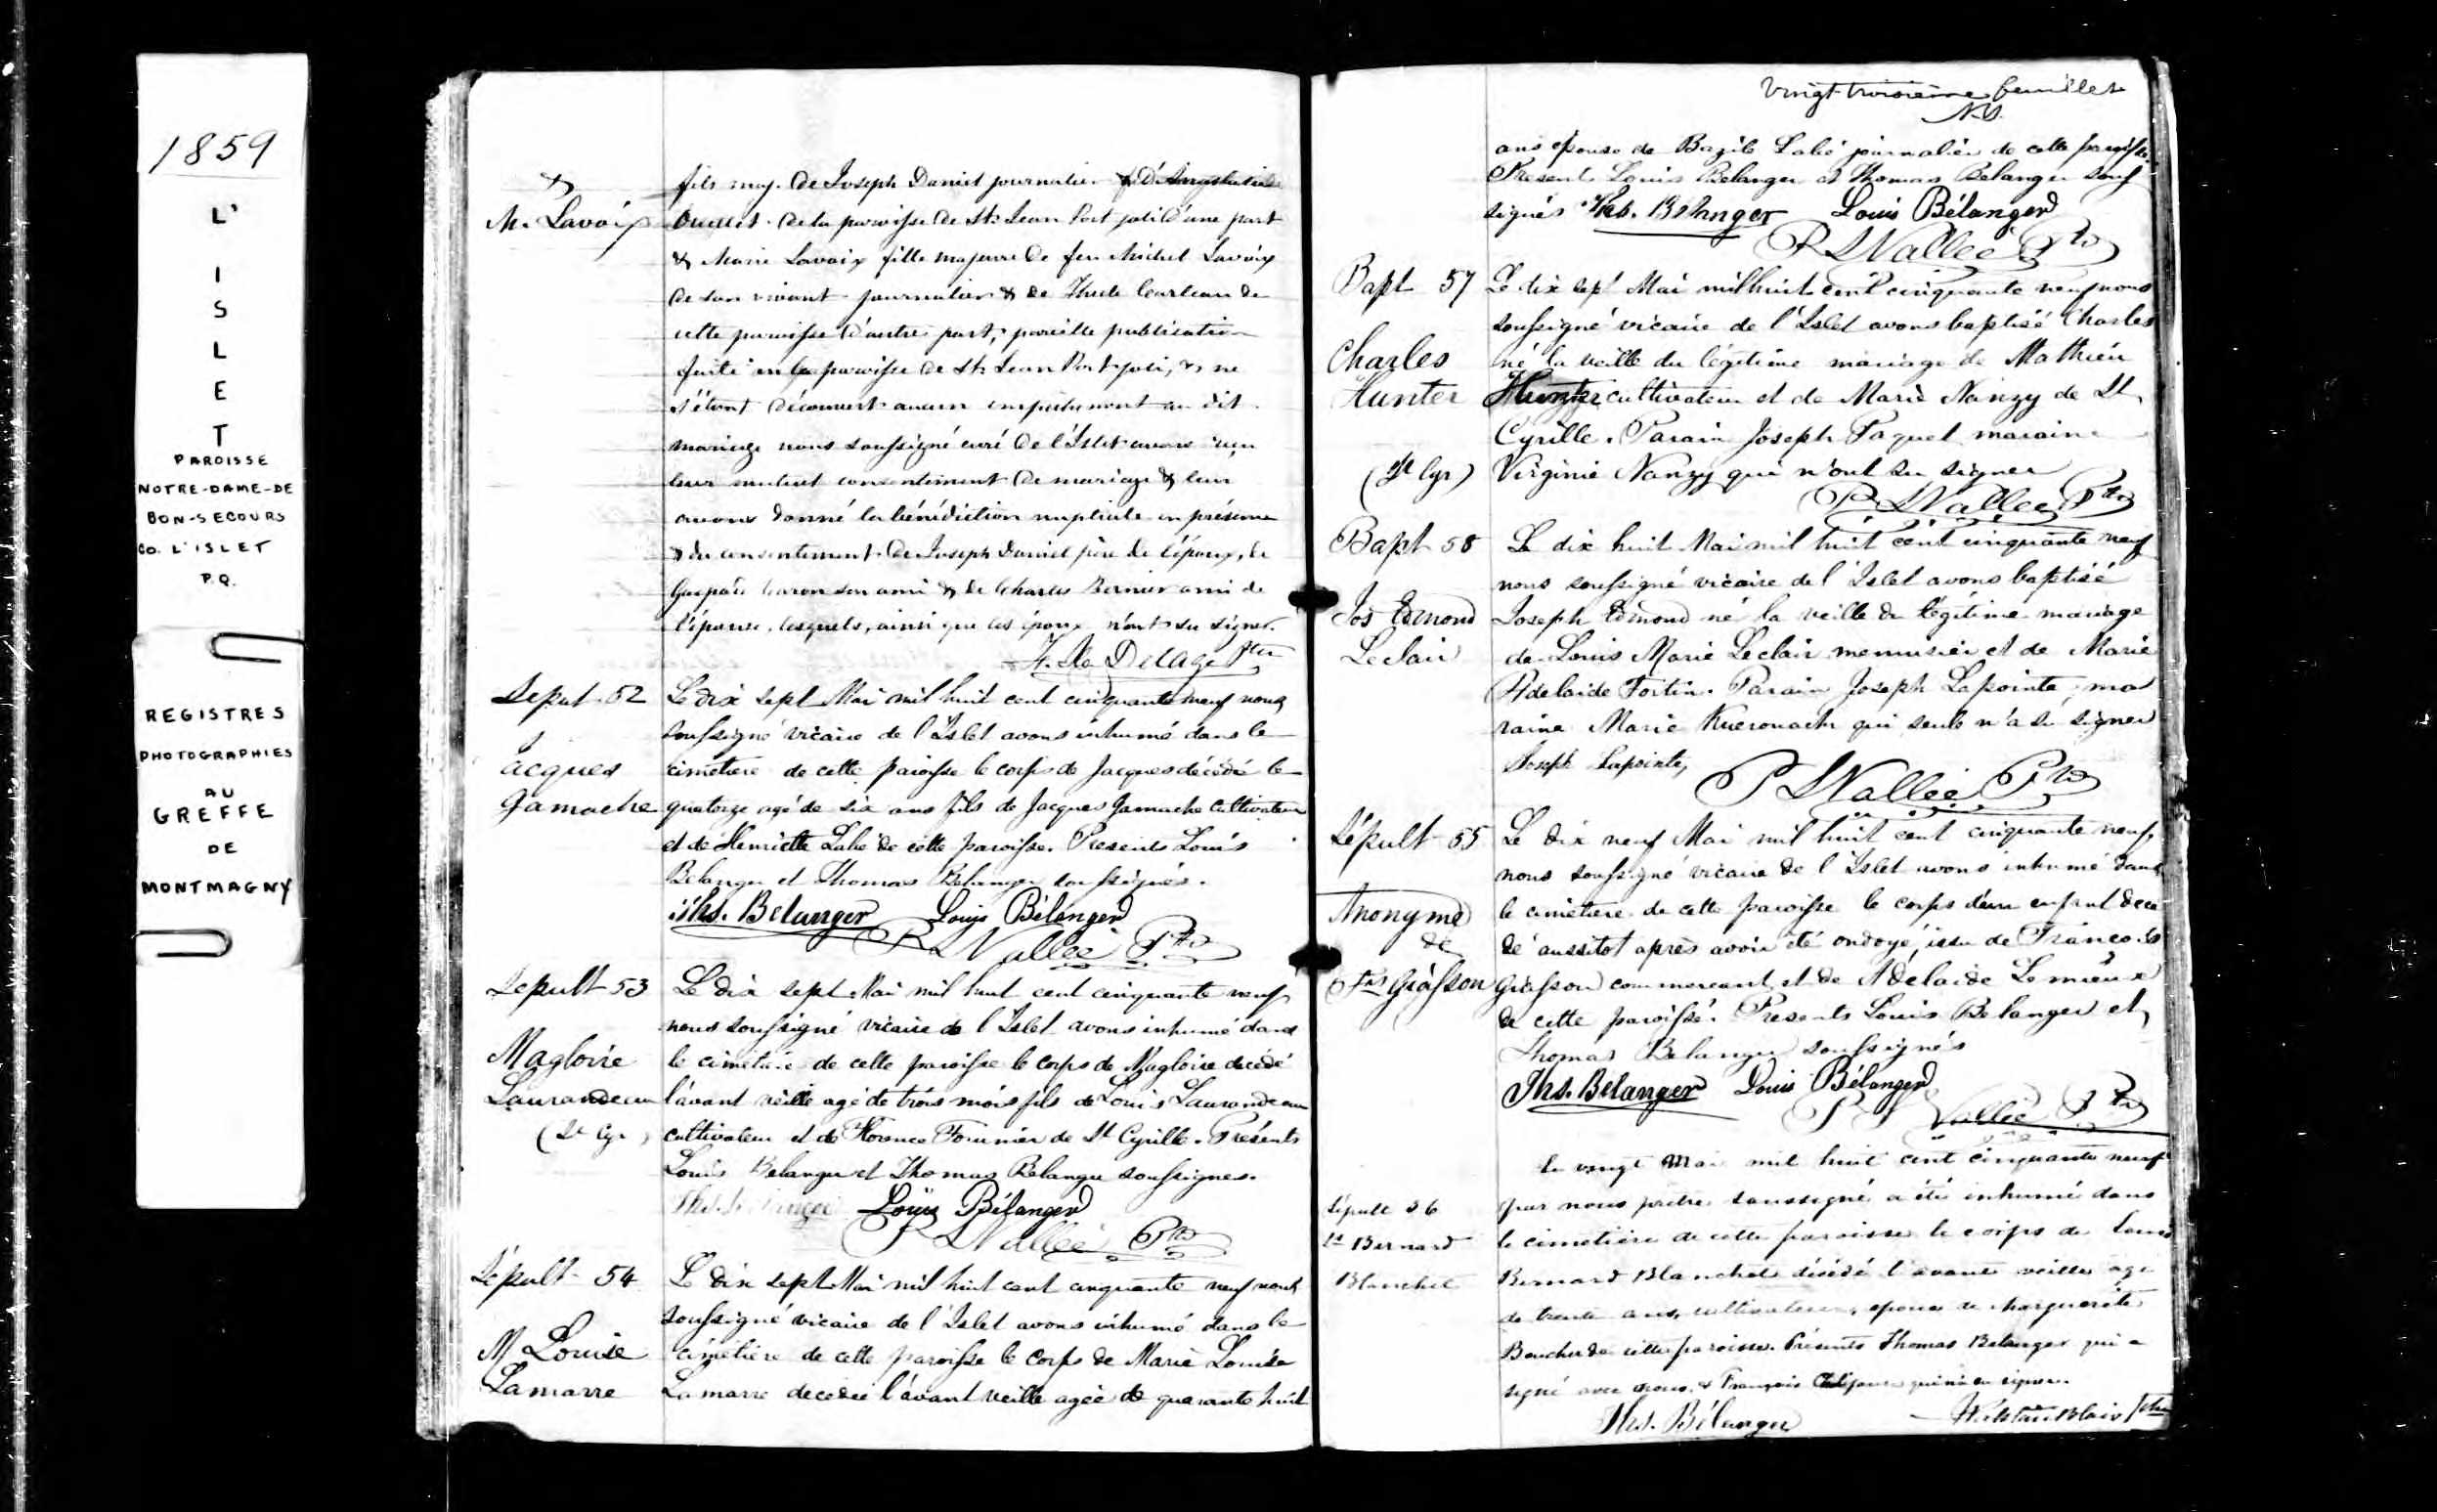 1859
L'
I
S
L
E
T
PAROISSE
NOTRE-DAME-DE
BON-SECOURS
CO. L'ISLET
P.Q.
REGISTRES
PHOTOGRAPHIES
AU
GREFFE
DE
MONTMAGNY
&
M. Lavoix
fils maj. de Joseph Daniel journalier & d'Anastasie
Ouellet de la paroisse de St Jean Port joli d'une part
& Marie Lavoix fille majeure de feu Michel Lavoix
de son vivant journalier & de Thècle
cette paroisse d'autre part; pareille publication
faite en la paroisse de St Jean Port-joli, & ne
s'étant découvert aucun empêchement au dit
mariage nous soussigné curé de l'Islet avons reçu
leur mutuel consentement de mariage & leur
avons donné la bénédiction nuptiale en présence
& du consentement de Joseph Daniel père de l'époux, de
Gaspard Caron son ami & de Charles Bernier ami de
l'épouse, lesquels, ainsi que les époux n'ont su signer.
Delage Ptre
Sepult. 52
Jacques
Gamache
Le dix sept Mai mil huit cent cinquante neuf nous
soussigné vicaire de l'Islet avons inhumé dans le
cimetiere de cette paroisse le corps de Jacques décédé le
quatorze agé de six ans fils de Jacques Gamache cultivateur
et de Henriette Labé de cette paroisse. Presents Louis
Belanger et Thomas Belanger soussignés.
Ths. Belanger Louis Bélanger
P S Vallée Ptre
Sepult 53
Magloire
Laurandeau
(St Cyr)
Le dix sept Mai mil huit cent cinquante neuf
nous soussigné vicaire de l'Islet avons inhumé dans
le cimetiere de cette paroisse le corps de Magloire decédé
l'avant veille agé de trois mois fils de Louis Laurandeau
cultivateur et de Florence Fournier de St Cyrille. Présents
Louis Belanger et Thomas Belanger soussignes.
Ths. Belanger Louis Bélanger
P S Vallée Ptre
Sépult 54
M Louise
Lamarre
Le dix sept Mai mil huit cent cinquante neuf nous
soussigné vicaire de l'Islet avons inhumé dans le
cimetière de cette paroisse le corps de Marie Louise
Lamarre decedée l'avant veille agée de quarante huit
Vingt troisieme feuillet
N.S.
ans epouse de Bazile Labé journalier de cette paroisse.
Present Louis Belanger et Thomas Belanger sous
signés Ths. Belanger Louis Bélanger
P S Vallée Ptre
Bapt 57
Charles
Hunter
(St Cyr)
Le dix sept Mai mil huit cent cinquante neuf nous
soussigné vicaire de l'Islet avons baptisé Charles
né la veille du légitime mariage de Mathieu
Hunter cultivateur et de Marie Nanzy de St
Cyrille. Parain Joseph Paquet maraine
Virginie Nanzy qui n'ont su signer
P S Vallée Ptre
Bapt 58
Jos Edmond
Leclair
Le dix huit Mai mil huit cent cinquante neuf
nous soussigné vicaire de l'Islet avons baptisé
Joseph Edmond né la veille du légitime mariage
de Louis Marie Leclair menuisier et de Marie
Adelaide Fortin. Parain Joseph Lapointe, ma
raine Marie Kuerouack qui seule n'a su signer
Joseph Lapointe,
P S Vallée Ptre
Sépult 55
Anonyme
de
Frs Giasson
Le dix neuf Mai mil huit cent cinquante neuf,
nous soussigné vicaire de l'Islet avons inhumé dans
le cimetiere de cette paroisse le corps d'un enfant déce
dé aussitot après avoir été ondoyé, issu de François
Giasson commercant et de Adélaide Lemieux
de cette paroisse. Presents Louis Belanger et
Thomas Belanger soussignés
Ths. Belanger Louis Bélanger
P S Vallée Ptre
Sépult 56
Ls Bernard
Blanchet
Le vingt Mai mil huit cent cinquante neuf
par nous prêtre soussigné a été inhumé dans
le cimetière de cette paroisse le corps de Louis
Bernard Blanchet décédé l'avant veille agé
de trente ans, cultivateur, epoux de Marguerite
Boucher de cette paroisse. Présents Thomas Belanger qui a
signé avec nous, & François qui n'a su signer.
Ths. Bélanger
Ptre